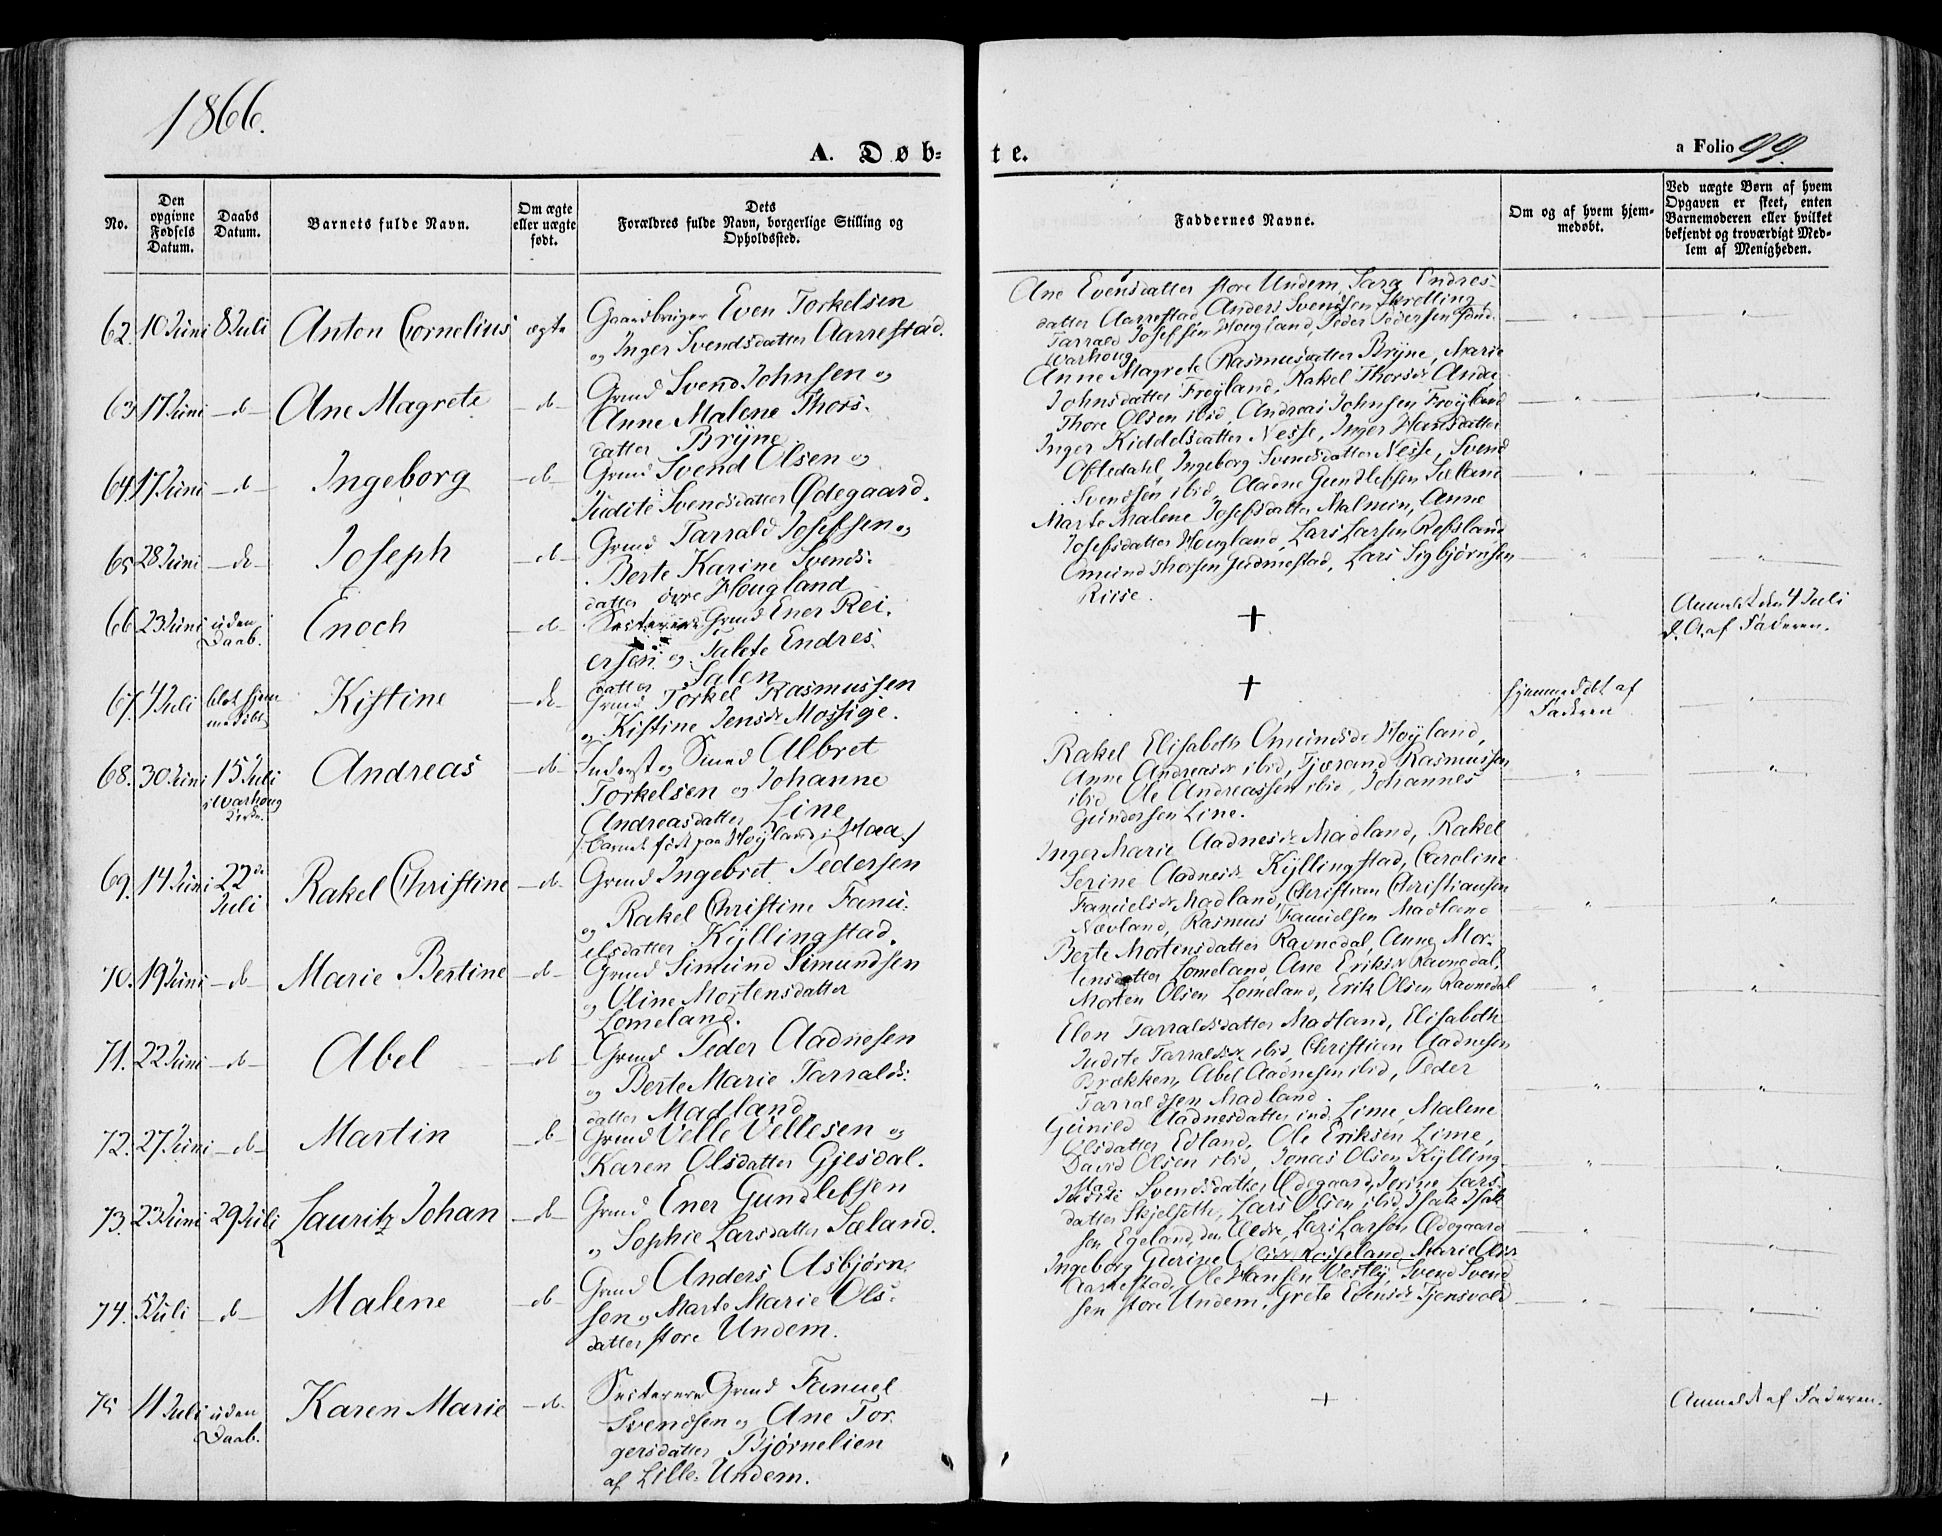 1866.
A. Døb-
te.
a Folio 99.
No.
Den opgivne Fødsels Datum.
Daabs Datum.
Barnets fulde Navn.
Om ægte eller uægte født.
Dets Forældres fulde Navn, borgerlige Stilling og Opholdssted.
Faddernes Navne.
Om og af hvem hjemmedøbt.
Ved uægte Børn af hvem Opgaven er skeet, enten Barnemoderen eller hvilket bekjendt og troværdigt Medlem af Menigheden.
62. 10 Juni 8 Juli Anton Cornelius ægte
Gaardbruger Even Torkelsen
og Inger Svendsdatter Aarrestad.
Ane Evensdatter store Undem, Sara Endres-
datter Aarrestad, Anders Svendsen Skretting
Tarrald Josefsen Hougland, Peder Pedersen
Warhoug
63 17 Juni -d- Ane Magrete -d-
Grmd Svend Johnsen og
Anne Malene Thors-
datter Bryne.
Anne Magrete Rasmusdatter Bryne, Marie
Johnsdatter Frøyland, Rakel Thorsdr
Thore Olsen ibid, Andreas Johnsen Frøyland
64. 17 Juni -d- Ingeborg -d-
Grmd Svend Olsen og
Judite Svendsdatter Ødegaard.
Inger Kiddelsdatter Nesse, Inger Hansdatter
Oftedahl Ingeborg Svendsdatter Nesse, Svend
Svendsen ibid, Aadne Gundlefsen Sæland
65 28 Juni -d- Joseph -d-
Grmd Tarrald Josefsen og
Berte Karine Svends-
datter øvre Hougland
Marte Malene Josefsdatter Malmin, Anne
Josefsdatter Hougland, Lars Larsen Refsland
Omund Thorsen Gudmestad, Lars Sigbjørnsen
Risse.
66 23 Juni uden Daab. Enoch -d-
Grmd Ener Rei-
ersen og Talete Endres-
datter Salen
+
Anmeldt den 4 Juli
d. A. af Faderen.
67. 4 Juli blot hjem-
medøbt Kistine -d-
Grmd Torkel Rasmussen
og Kistine Jensdr Mossige.
+
hjemmedøbt af
Faderen
68. 30 Juni 15 Juli
i Warhoug
Kirke. Andreas -d-
Inderst og Smed Albret
Torkelsen og Johanne
Andreasdatter Line
/: Barnet født paa Høyland i Haa :/
Rakel Elisabeth Omundsdr Høyland,
Anne Andreasdr ibid, Tjærand Rasmussen
ibid, Ole Andreassen ibid, Johannes
Gundersen Line.
69. 14 Juni 22de
Juli Rakel Christine -d-
Grmd Ingebret Pedersen
og Rakel Christine Fanu-
elsdatter Kyllingstad.
Inger Marie Aadnesdr Madland, Rakel
Serine Aadnesdr Kyllingstad, Caroline
Fanuelsdr Madland, Christian Christiansen
Nævland, Rasmus Fanuelsen Madland
70. 19 Juni -d- Marie Bertine -d-
Grmd Simund Simundsen
og Oline Mortensdatter
Lomeland.
Berte Mortensdatter Ravnedal, Anne Mor-
tensdatter Lomeland, Ane Eriksdr Ravnedal,
Morten Olsen Lomeland, Erik Olsen Ravnedal
71. 22 Juni -d- Abel -d-
Grmd Peder Aadnesen
og Berte Marie Tarralds-
datter Madland
Elen Tarraldsdatter Madland, Elisabeth
Judite Tarraldsdr ibid, Christian Aadnesen
Brækken, Abel Aadnesen ibid, Peder
Tarraldsen Madland.
72. 27 Juni -d- Martin -d-
Grmd Velle Vellesen og
Karen Olsdatter Gjesdal.
Gunild Aadnesdatter ind. Lime, Malene
Olsdatter Edland, Ole Eriksen Lime,
David Olsen ibid, Jonas Olsen Kylling-
stad
73. 23 Juni 29 Juli Lauritz Johan -d-
Grmd Ener Gundlefsen
og Sophie Larsdatter Sæland.
Judite Svendsdatter Ødegaard, Serine Lars-
datter Skjelsette, Lars Olsen ibid, Isak Isak-
sen Egeland, den Ældre, Lars Larsen Ødegaard
74. 5 Juli -d- Malene -d-
Grmd Anders Asbjørn-
sen og Marte Marie Ols-
datter store Undem.
Ingeborg Gurine Olsdr Røiseland, Marie Olsdr
Aarrestad, Ole Hansen Vestly, Svend Svend-
sen store Undem, Grete Evensdr Tjensvold
75 11 Juli uden
Daab. Karen Marie -d-
Grmd Fanuel
Svendsen og Ane Tor-
gersdatter Bjørnelien
af Lille-Undem.
+
Anmeldt af Faderen.